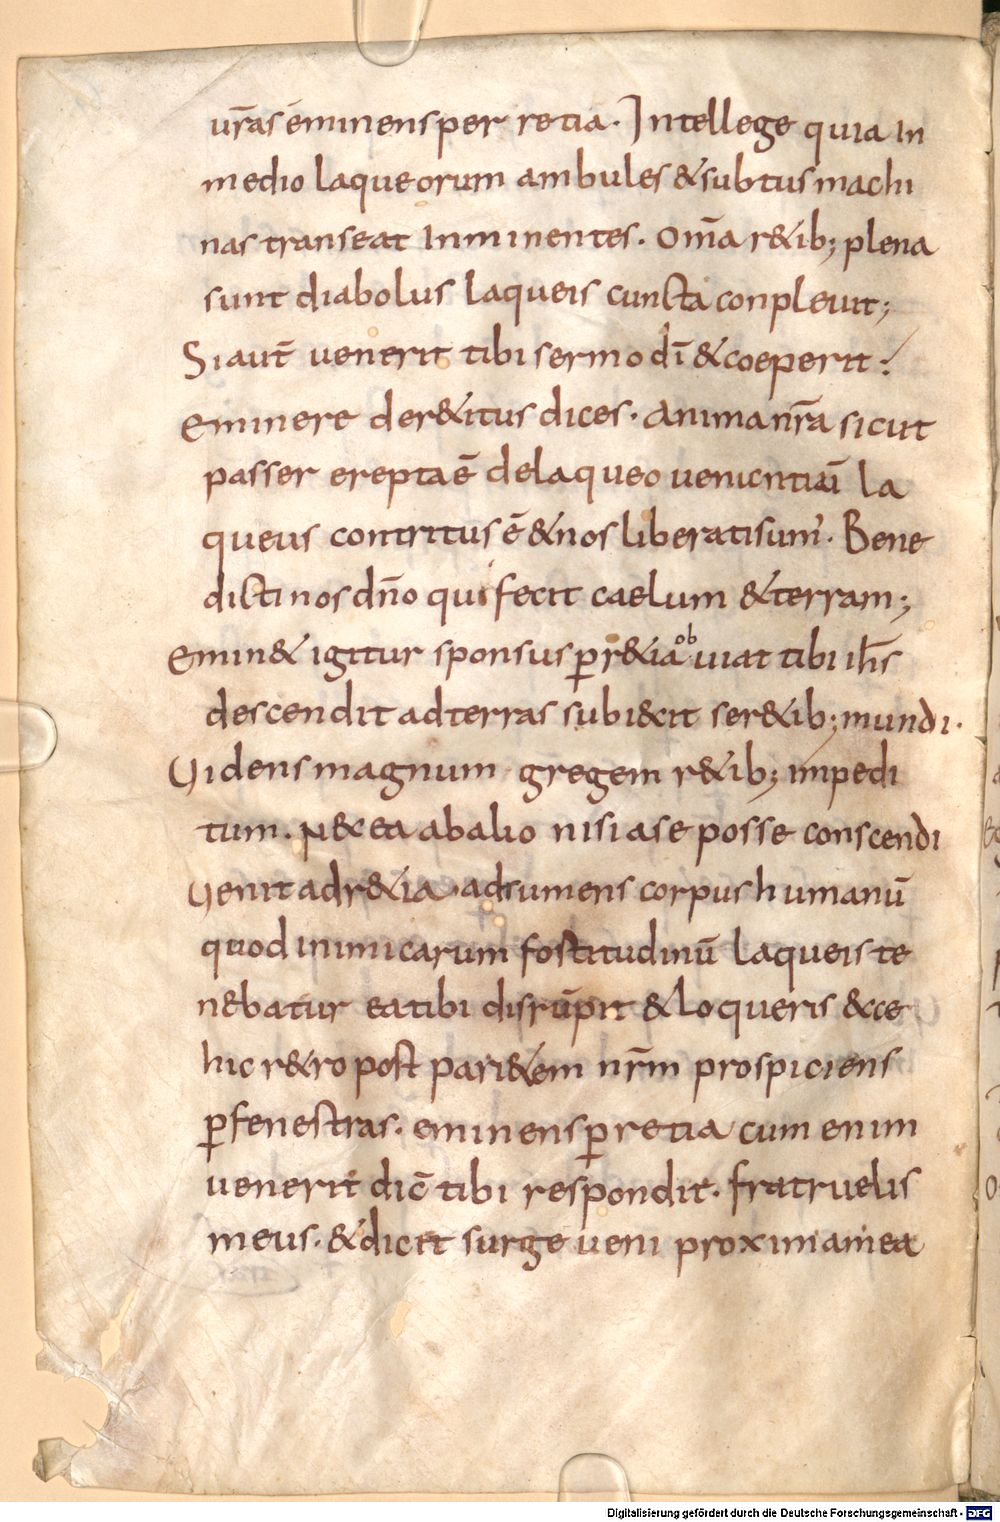 ur̄as eminens per retia. Intellege quia In
medio laqueorum ambules & subtus machi
nas transeat Inminentes. om̄a r&ib; plena
sunt diabolus laqueis cuncta conpleuit;
Si aut̄ uenerit tibi sermo dī & coeperit
eminere de r&itus dices. anima nr̄a sicut
passer erepta ē de laqueo uenientiū la
queus contritus ē & nos liberati sum'. Bene
dicti nos dn̄o qui fecit caelum & terram;
emin& igitur sponsus ꝑ r&ia obuiat tibi ih̄s
descendit ad terras subi&cit se r&ib; mundi.
Videns magnum gregem r&ib; impedi
tum. N&c ea ab alio nisi a se posse conscendi
Venit ad r&ia. adsumens corpus humanū
quod inimicarum fostitudinū laqueis te
nebatur ea tibi disrūpit & loqueris &cce
hic r&ro post pari&em nr̄m prospiciens
ꝑ fenestras. eminens ꝑ retia cum enim
uenerit dic̄ tibi respondit. fratruelis
meus. & dicit surge ueni proxima mea
Digitalisierung gefördert durch die Deutsche Forschungsgemeinschaft - DFG